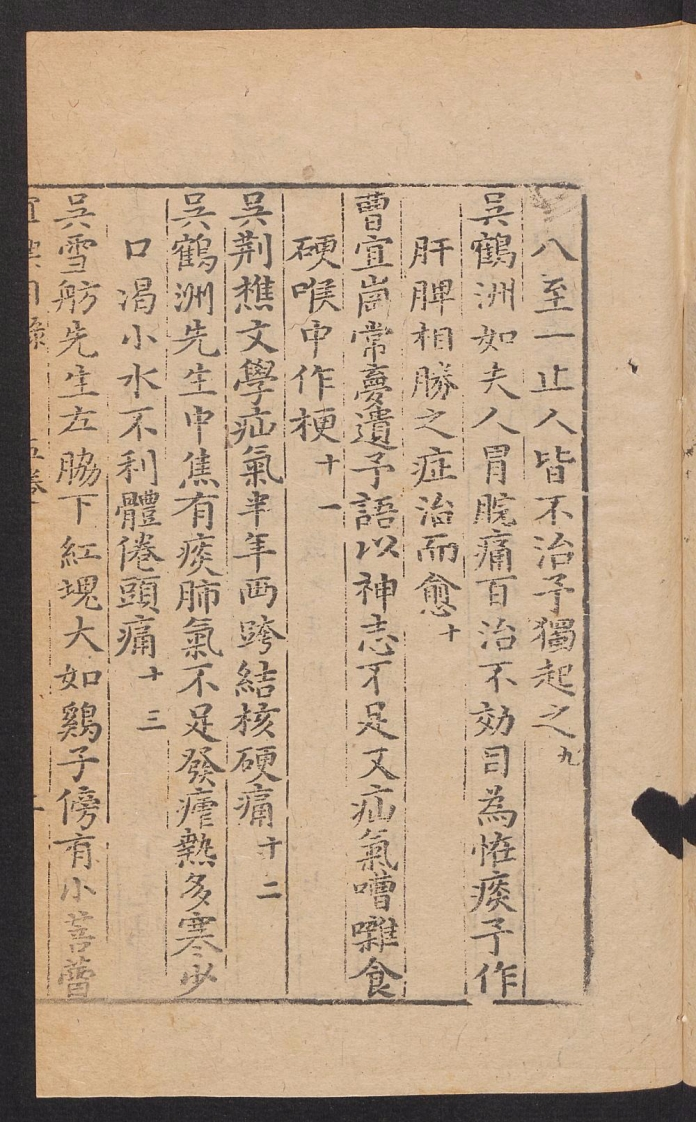 八至一止人皆不治予獨起之九
吳鶴洲如夫人胃脘痛百治不効目為恠痰予作
肝脾相勝之症治而愈十
曹宜崗常夢遺予語以神志不足又疝氣嘈囃食
硬喉中作梗十一
吳荆樵文學疝氣半年两跨結核硬痛十二
吳鶴洲先生中焦有痰肺氣不足發瘧熱多寒少
口渴小水不利體倦頭痛十三
吳雪舫先生左脇下紅塊大如鷄子傍有小菩蕾
五卷